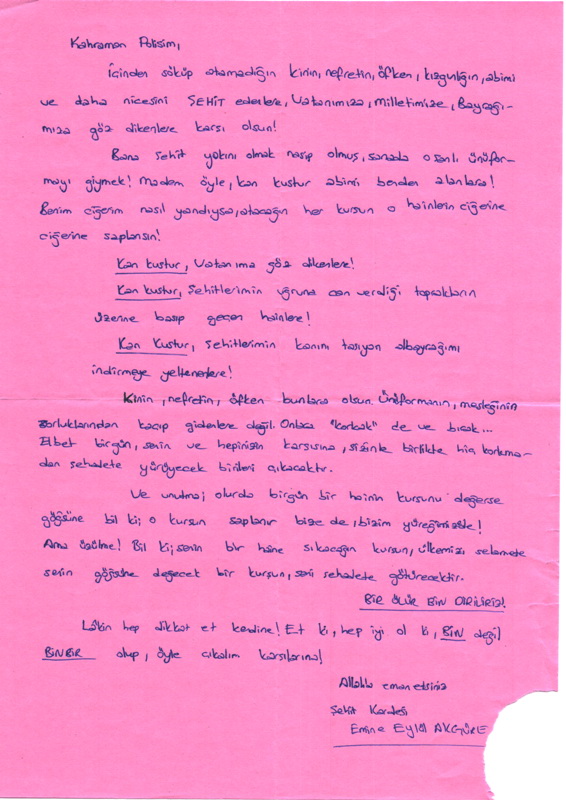 Kahraman Polisim,
İçinden söküp atamadığın kinin, nefretin, öfken, kızgınlığın, abimi
ve daha nicesini ŞEHİT edenlere, Vatanımıza, Milletimize, Bayrağı-
mıza göz dikenlere karşı olsun!
Bana şehit yakını olmak nasip olmuş, sanada o şanlı ünüfor-
mayı giymek! Madem öyle, kan kustur abimi benden alanlara!
Benim ciğerim nasıl yandıysa, atacağın her kurşun o hainlerin ciğerine
ciğerine saplansın!
Kan kustur, Vatanıma göz dikenlere!
Kan kustur, Şehitlerimin uğruna can verdiği toprakların
üzerine basıp geçen hainlere!
Kan Kustur, Şehitlerimin kanını taşıyan albayrağımı
indirmeye yeltenenlere!
Kinin, nefretin, öfken bunlara olsun. Ünüformanın, mesleğinin
zorluklarından kaçıp gidenlere değil. Onlara "korkak" de ve bırak...
Elbet birgün, senin ve hepinizin karşısına, sizinle birlikte hiç korkma-
dan şehadete yürüyecek birileri çıkacaktır.
Ve unutma; olurda birgün bir hainin kurşunu değerse
göğsüne bil ki; o kurşun saplanır bize de, bizim yüreğimizede!
Ama üzülme! Bil ki; senin bir haine sıkacağın kurşun, ülkemizi selamete
senin göğsüne değecek bir kurşun, seni şehadete götürecektir.
BİR ÖLÜR BİN DİRİLİRİZ!
Lâkin hep dikkat et kendine! Et ki, hep iyi ol ki, BİN değil
BİNBİR olup, öyle çıkalım karşılarına!
Allah'a emanetsiniz
Şehit Kardeşi
Emine Eylül AKGÜRE